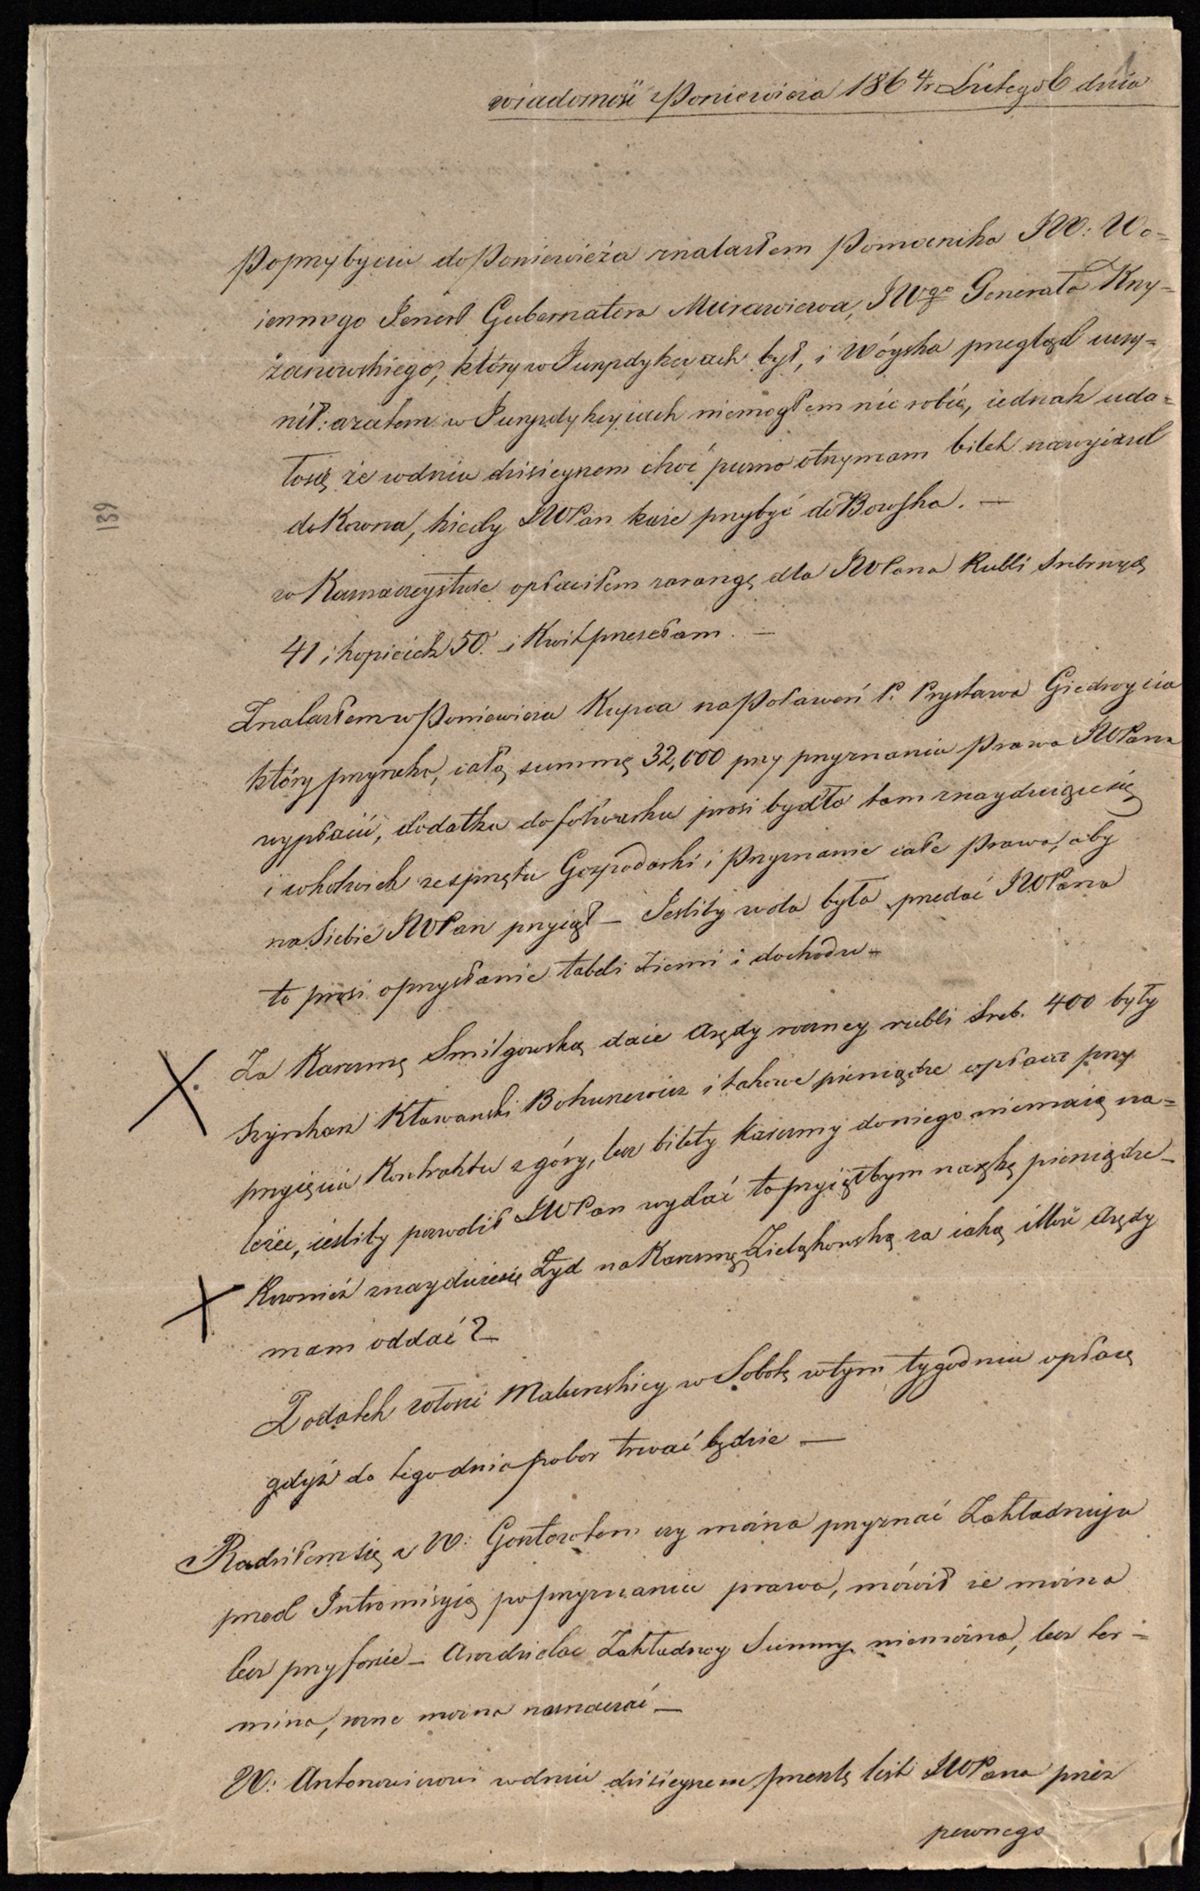 wiadomość z Poniewieża 1864 r. Lutego 6 dnia
Poprzybyciu do Poniewieża znalazłem Pomocnika JW: Wo=
iennego Jenerł Gubernatora Murawiewa, JWgo Generała Kry=
żanowskiego, który w Juryzdykcyach był, i Wóyska przegląd uczy=
nił: azatem w Juryzdykcyiach niemogłem nic robić, iednak uda=
łosię że wdniu dzisieyszem choć puzno otrzymam bilet nawyiazd
do Kowna, kiedy JWPan każe przybyć do Bowska. —
w Kaznaczeystwie opłaciłem zarangę dla JWPana Rubli Srebrnych
41 i kopieiek 50. i Kwit przesełam. —
Znalazłem w Poniewieżu Kupca na Poławeń P. Prystawa Giedroycia
który przyrzeka, całą summę 32,000 przy przyznaniu Prawa JWPana
wypłacić, dodatku do folwarku prosi bydło tam znayduiącesię
i wkolwiek zesprzętu Gospodarki i Przyznanie całe Prawa, aby
na Siebie JWPan przyiął — Jesliby wola była przedać JWPana
to prosi oprzysłanie tabeli ziemi i dochodu —
X. Za Karczmę Smilgowską daie Arędy roczney rubli Sreb. 400 były
Szynkarz Kławanski Bohunewicz i takowe pieniądze wpłaca przy
przyięciu Kontraktu z góry, lecz bilety Karczmy doniego niemaią na=
leżeć, iesliby pozwolił JWPan wydać toprzyiąłbym narękę pieniądze —
X Rownież znayduiesię Żyd na Karczmę Zieląkowską za iaką ilość Arędy
mam oddać? —
Podatek włosci Malunskiey w Sobotę wtym tygodniu opłacę
gdyż do tego dnia pobor trwać będzie —
Radziłemsię z W: Gontowtem czy można przyznać Zakładniia
przed Intromisyią poprzyznaniu prawa, mówił że można
lecz przyforie — Awzdzielać Zakładney Summy niemożna, lecz ter=
mina, rozne można naznaczać —
W: Antonowiczowi wdniu dzisieyszem przeszlę list JWPana przez
pewnego
139